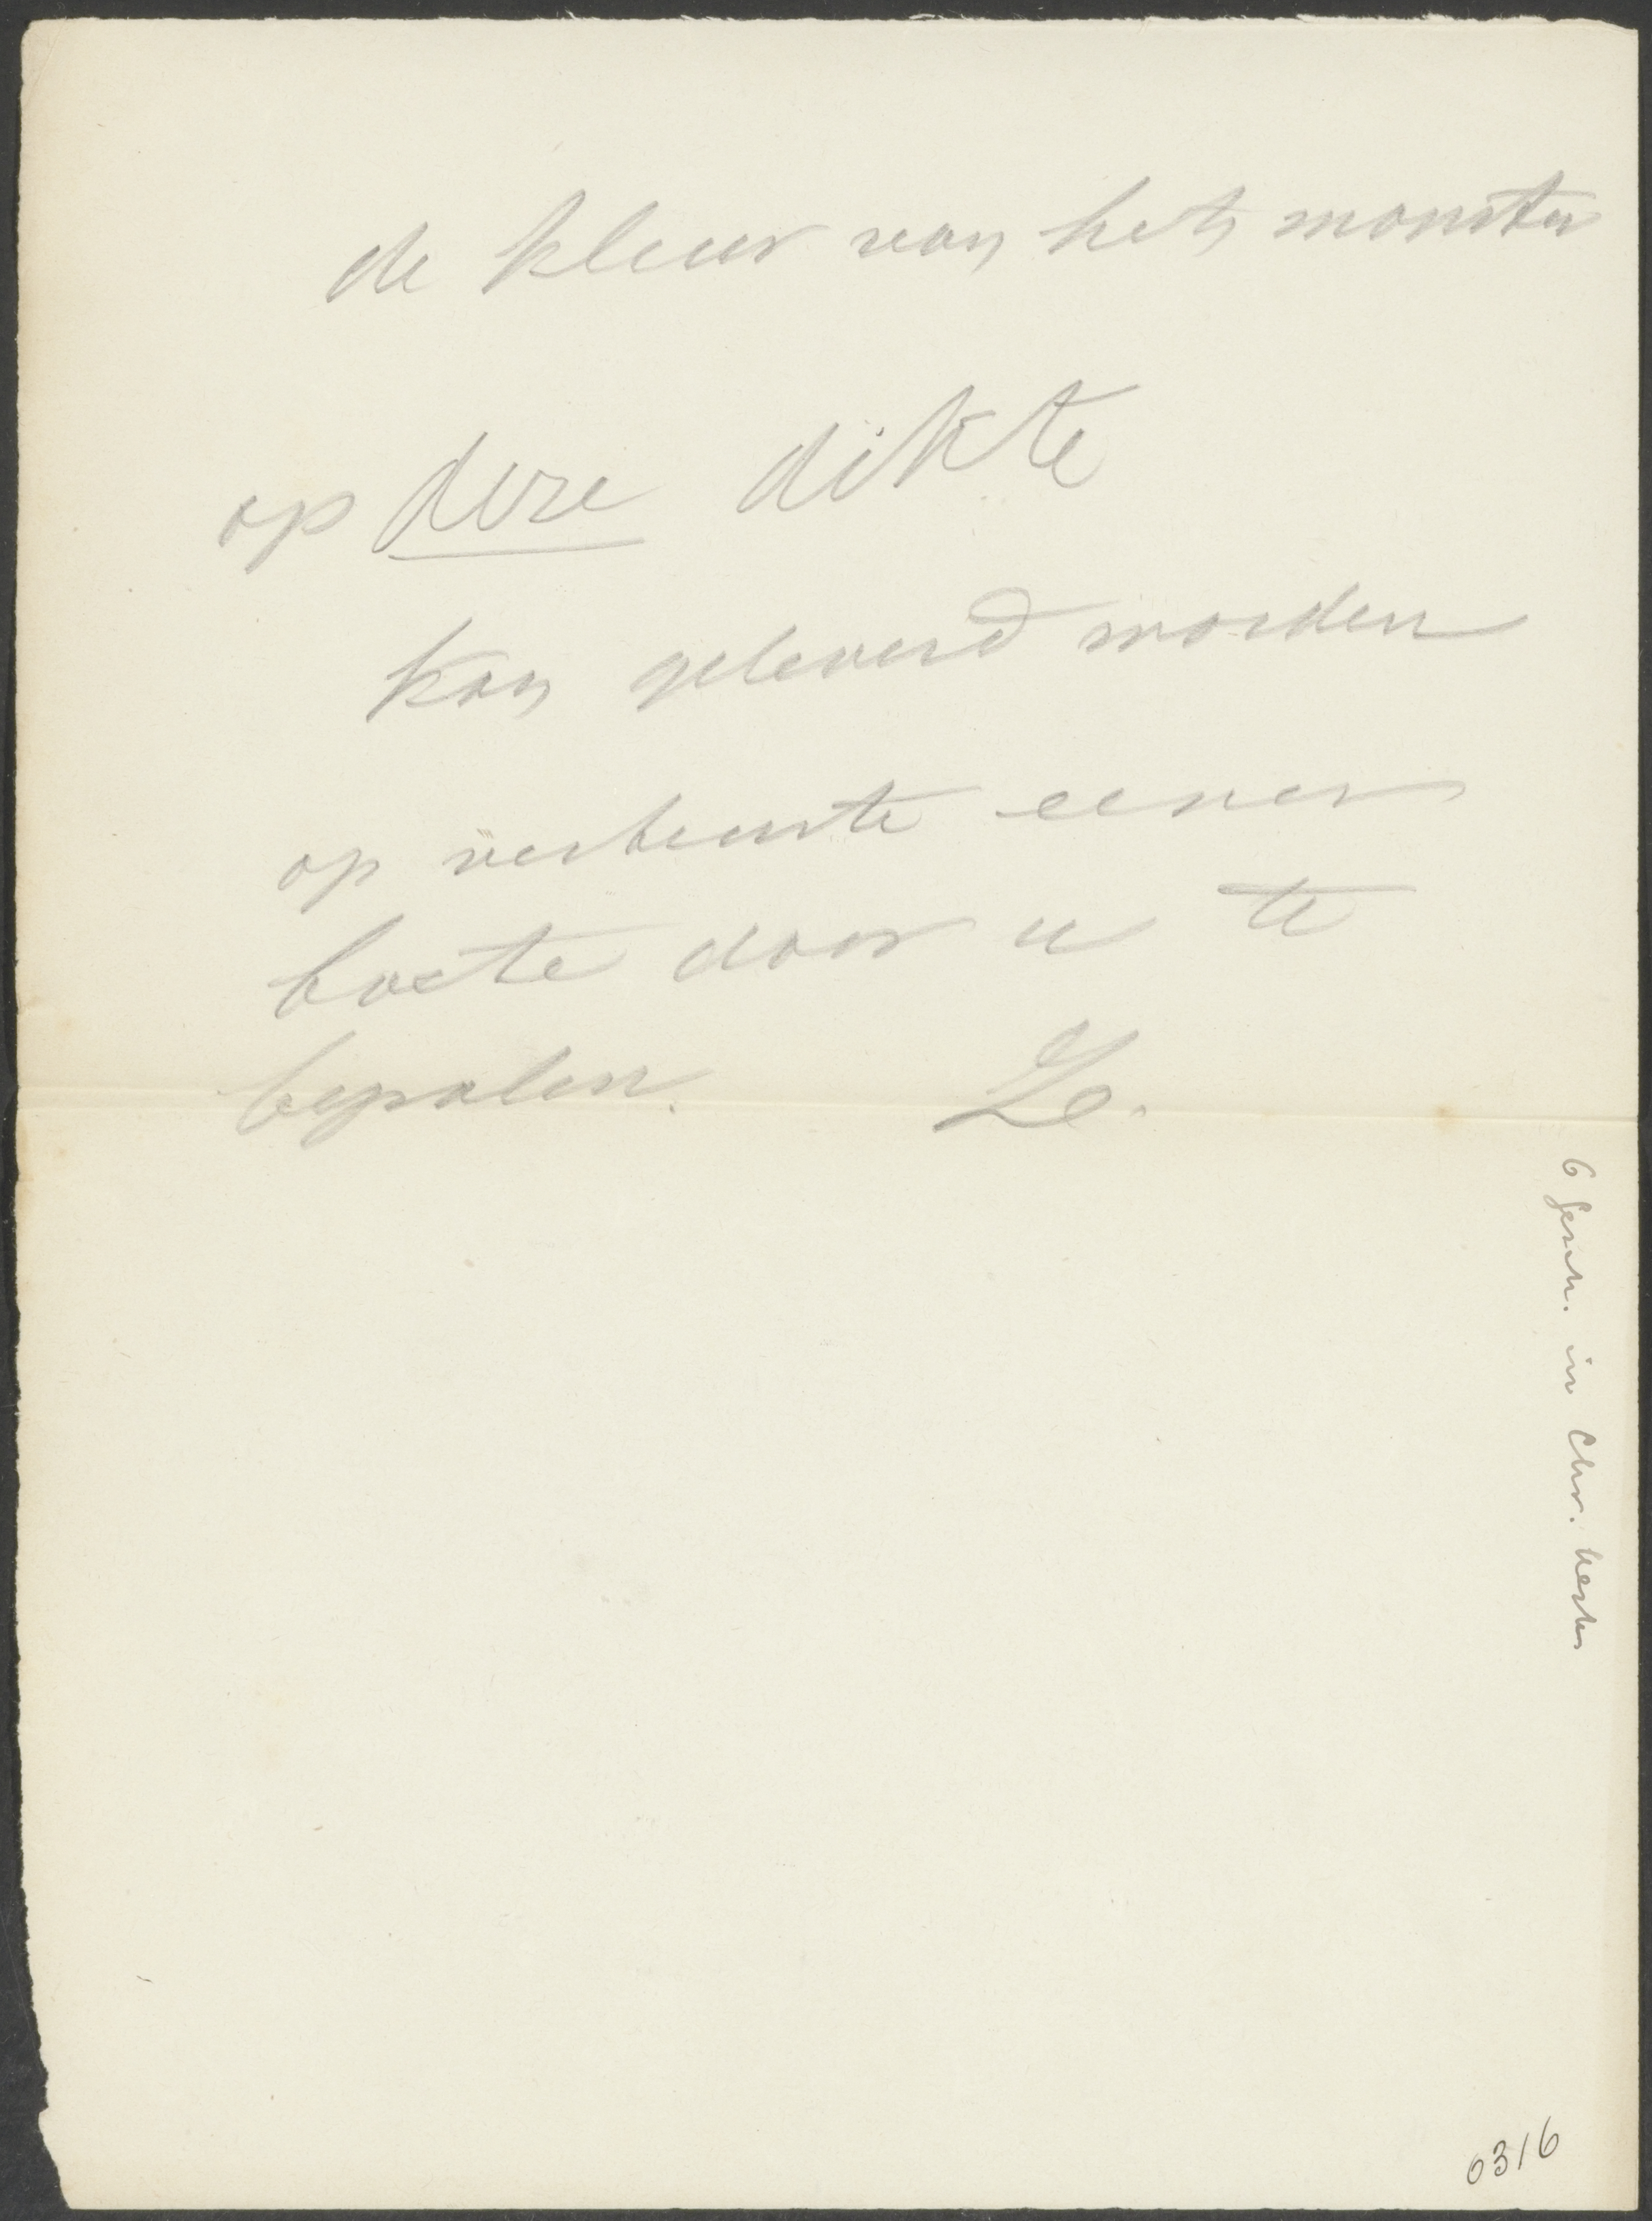 de kleur van het monster
op deze dikte
kan geleverd worden
op verbeurte eener
boete door u te
bepalen. Ze.
6 Gesch. in Chr. kerk
0316